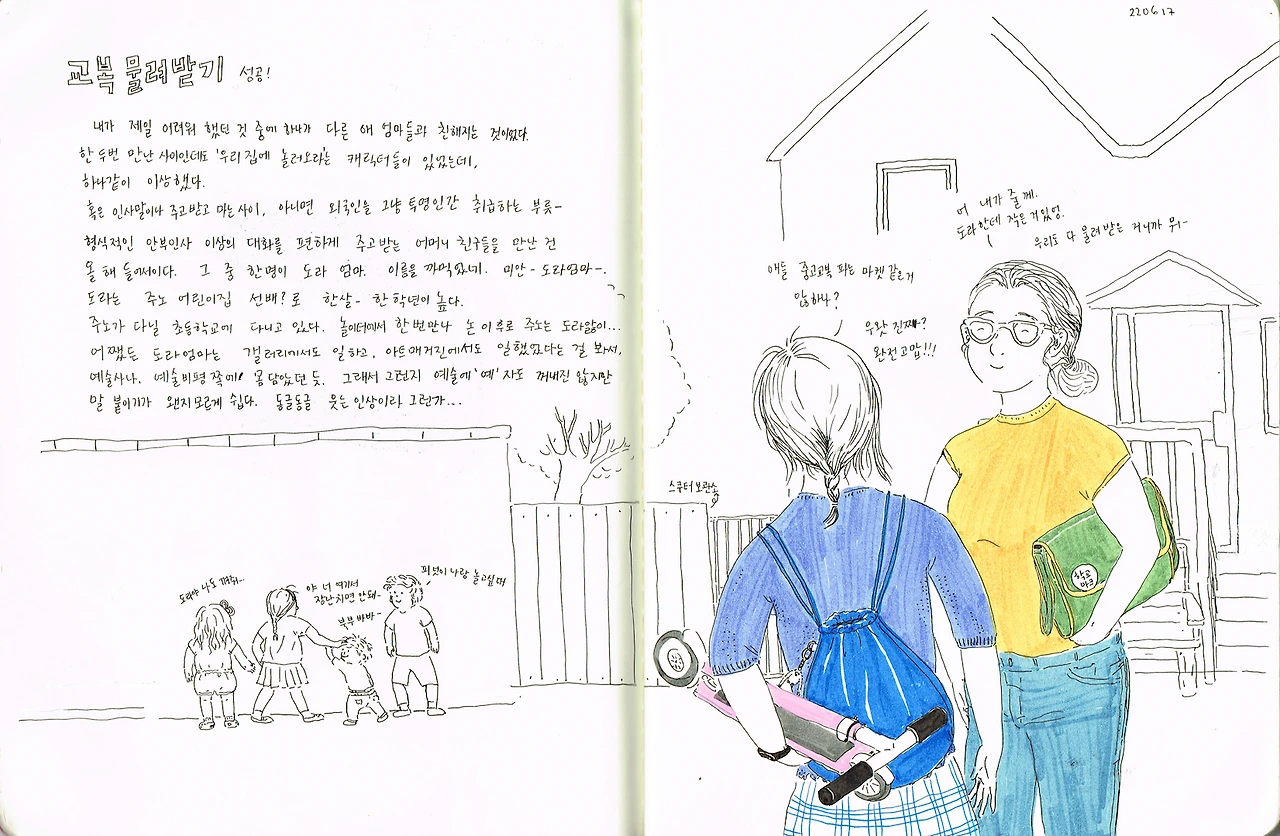 교복 물려받기 성공!
내가 제일 어려워 했던 것 중에 하나가 다른 애 엄마들과 친해지는 것이었다.
한 두번 만난 사이인데도 '우리집에 놀러오라'는 캐릭터들이 있었는데,
하나같이 이상했다.
혹은 인사말이나 주고받고 마는 사이, 아니면 외국인을 그냥 투명인간 취급하는 부류-
형식적인 안부인사 이상의 대화를 편하게 주고받는 어머니 친구들을 만난 건
올해 들어서이다. 그 중 한명이 도라 엄마. 이름을 까먹었네. 미안- 도라엄마-.
도라는 주노 어린이집 선배?로 한살- 한 학년이 높다.
주노가 다닐 초등학교에 다니고 있다. 놀이터에서 한번 만나 논 이후로 주노는 도라앓이...
어쨌든 도라엄마는 갤러리에서도 일하고, 아트매거진에서도 일했었다는 걸 봐서,
예술사나, 예술비평 쪽에 몸담았던 듯. 그래서 그런지 예술에 '예'자도 꺼내진 않지만
말 붙이기가 왠지모르게 쉽다. 동글동글 웃는 인상이라 그런가...
도라야 나도 껴줘...
야 너 여기서
장난치면 안돼-
북부 바바-
피넛이 나랑 놀고싶대
220617
어 내가 줄게.
도라한테 작은 거 있엉.
우리도 다 물려받은 거니까 뭐-
애들 중고교복 파는 마켓 같은거
안하나?
우왓 진짜?
완전 고맙!!!
스쿠터 보관소
학교
마크